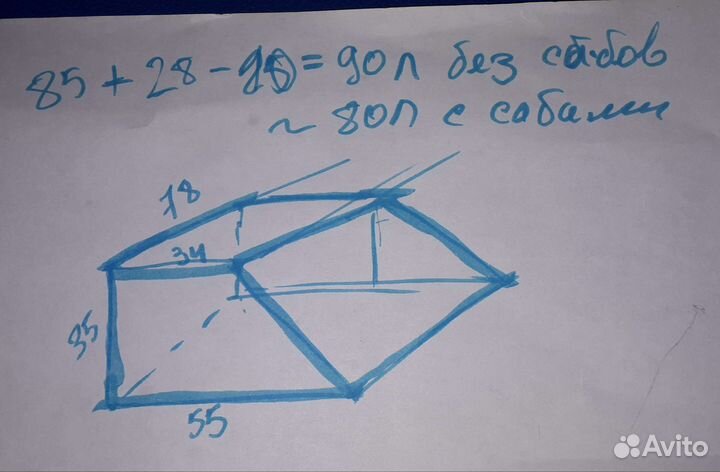 85 + 28 - 18 = 90л без сабов
~ 80л с сабами
78
34
35
55
Avito